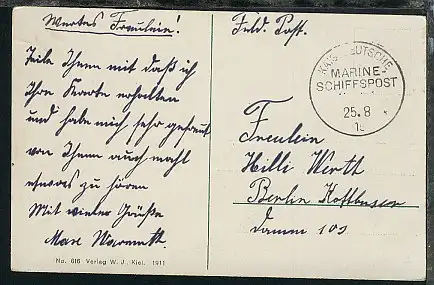 Wertes Fräulein!
Teile Ihnen mit daß ich
Ihre Karte erhalten
und habe mich sehr gefreut
von Ihnen auch mahl
etwas zu hören
Mit vielen Grüße
Max
No. 616 Verlag W. J. Kiel. 1911
Feld. Post.
KAIS. DEUTSCHE
MARINE-
SCHIFFSPOST
25.8
Freulein
Hilli Werth
Berlin Kottbuser
Damm 103